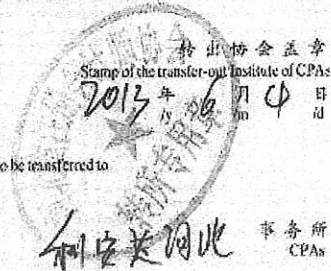 转出协会盖章
Stamp of the transfer-out Institute of CPAs
2013 年 6 月 4 日
/y /m /d
o be transferred to
利安达河北 事务所
CPAs
转所专用章